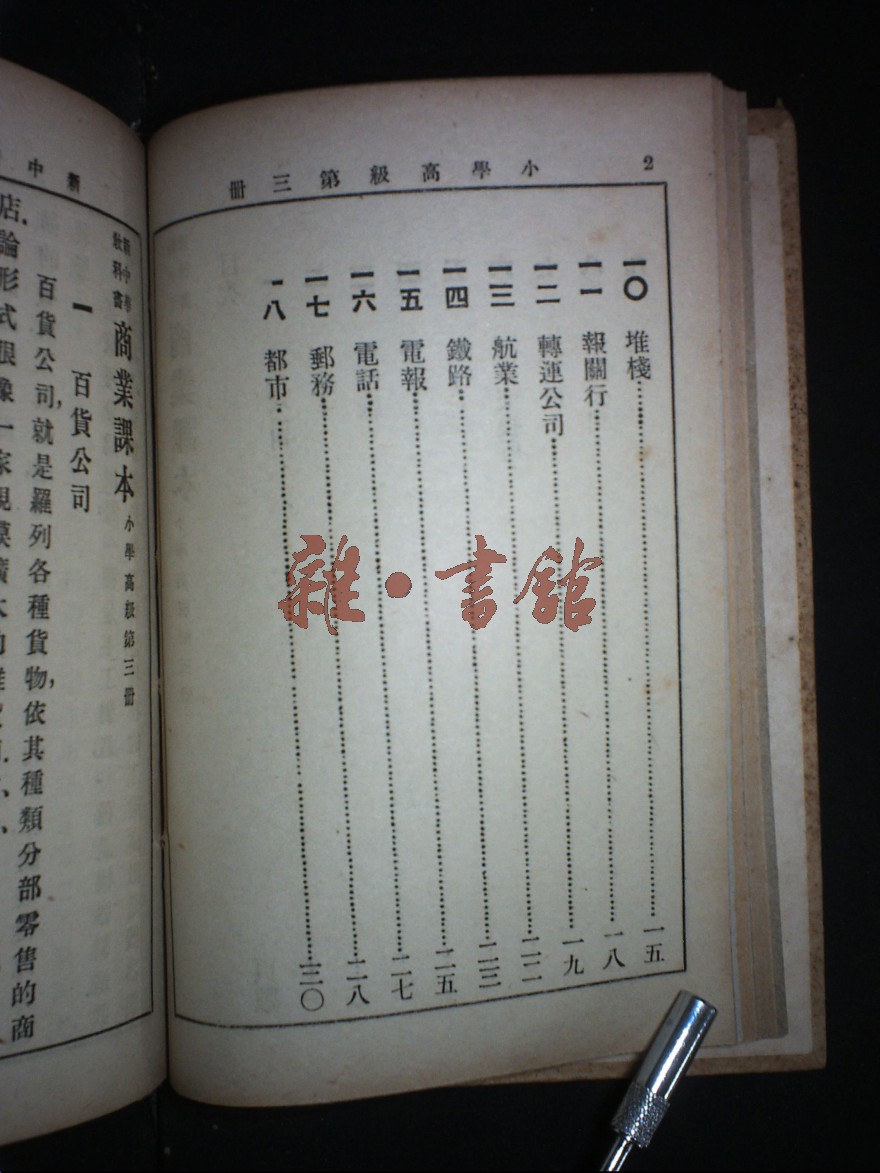 2 小學高級第三冊
一〇 堆棧……一五
一一 報關行……一八
一二 轉運公司……一九
一三 航業……二二
一四 鐵路……二三
一五 電報……二五
一六 電話……二七
一七 郵務……二八
一八 都市……三〇
新中
新中華教科書 商業課本 小學高級第三冊
一 百貨公司
百貨公司就是羅列各種貨物,依其種類分部零售的商
店.論形式很像一家規模擴大的雜
雜·書館